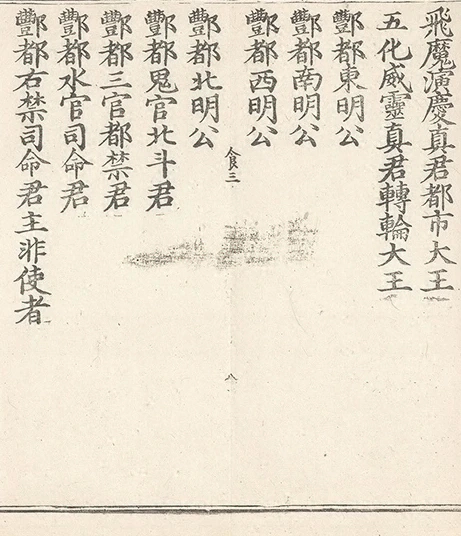 飛魔演慶真君都市大王
五化威靈真君轉輪大王
酆都東明公
酆都南明公
酆都西明公
食三
八
酆都北明公
酆都鬼官北斗君
酆都三官都禁君
酆都水官司命君
酆都右禁司命君主非使者